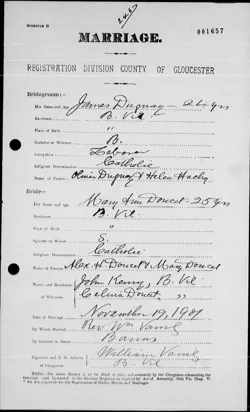 001657
MARRIAGE.
REGISTRATION DIVISION COUNTY OF GLOUCESTER
Bridegroom:
His Name and Age, James Duguay — 24 yrs
Residence B. Vil
Place of Birth "
B.
Occupation Laborer
Religious Denomination Catholic
Name of Parents Olivier Duguay & Helen Hachy
Bride:
Her Name and Age, Mary Ann Doucet — 25 yrs
Residence B. Vil
Place of Birth "
Spinster or Widow S
Religious Denomination Catholic
Name of Parents Alex H Doucet & Mary Doucet
Names and Residences John Kenny, B. Vil
of Witnesses Doucet "
November 19, 1901
By Whom Married Rev Wm Varrily
By License or Banns Banns
William Varrily
B. Vil